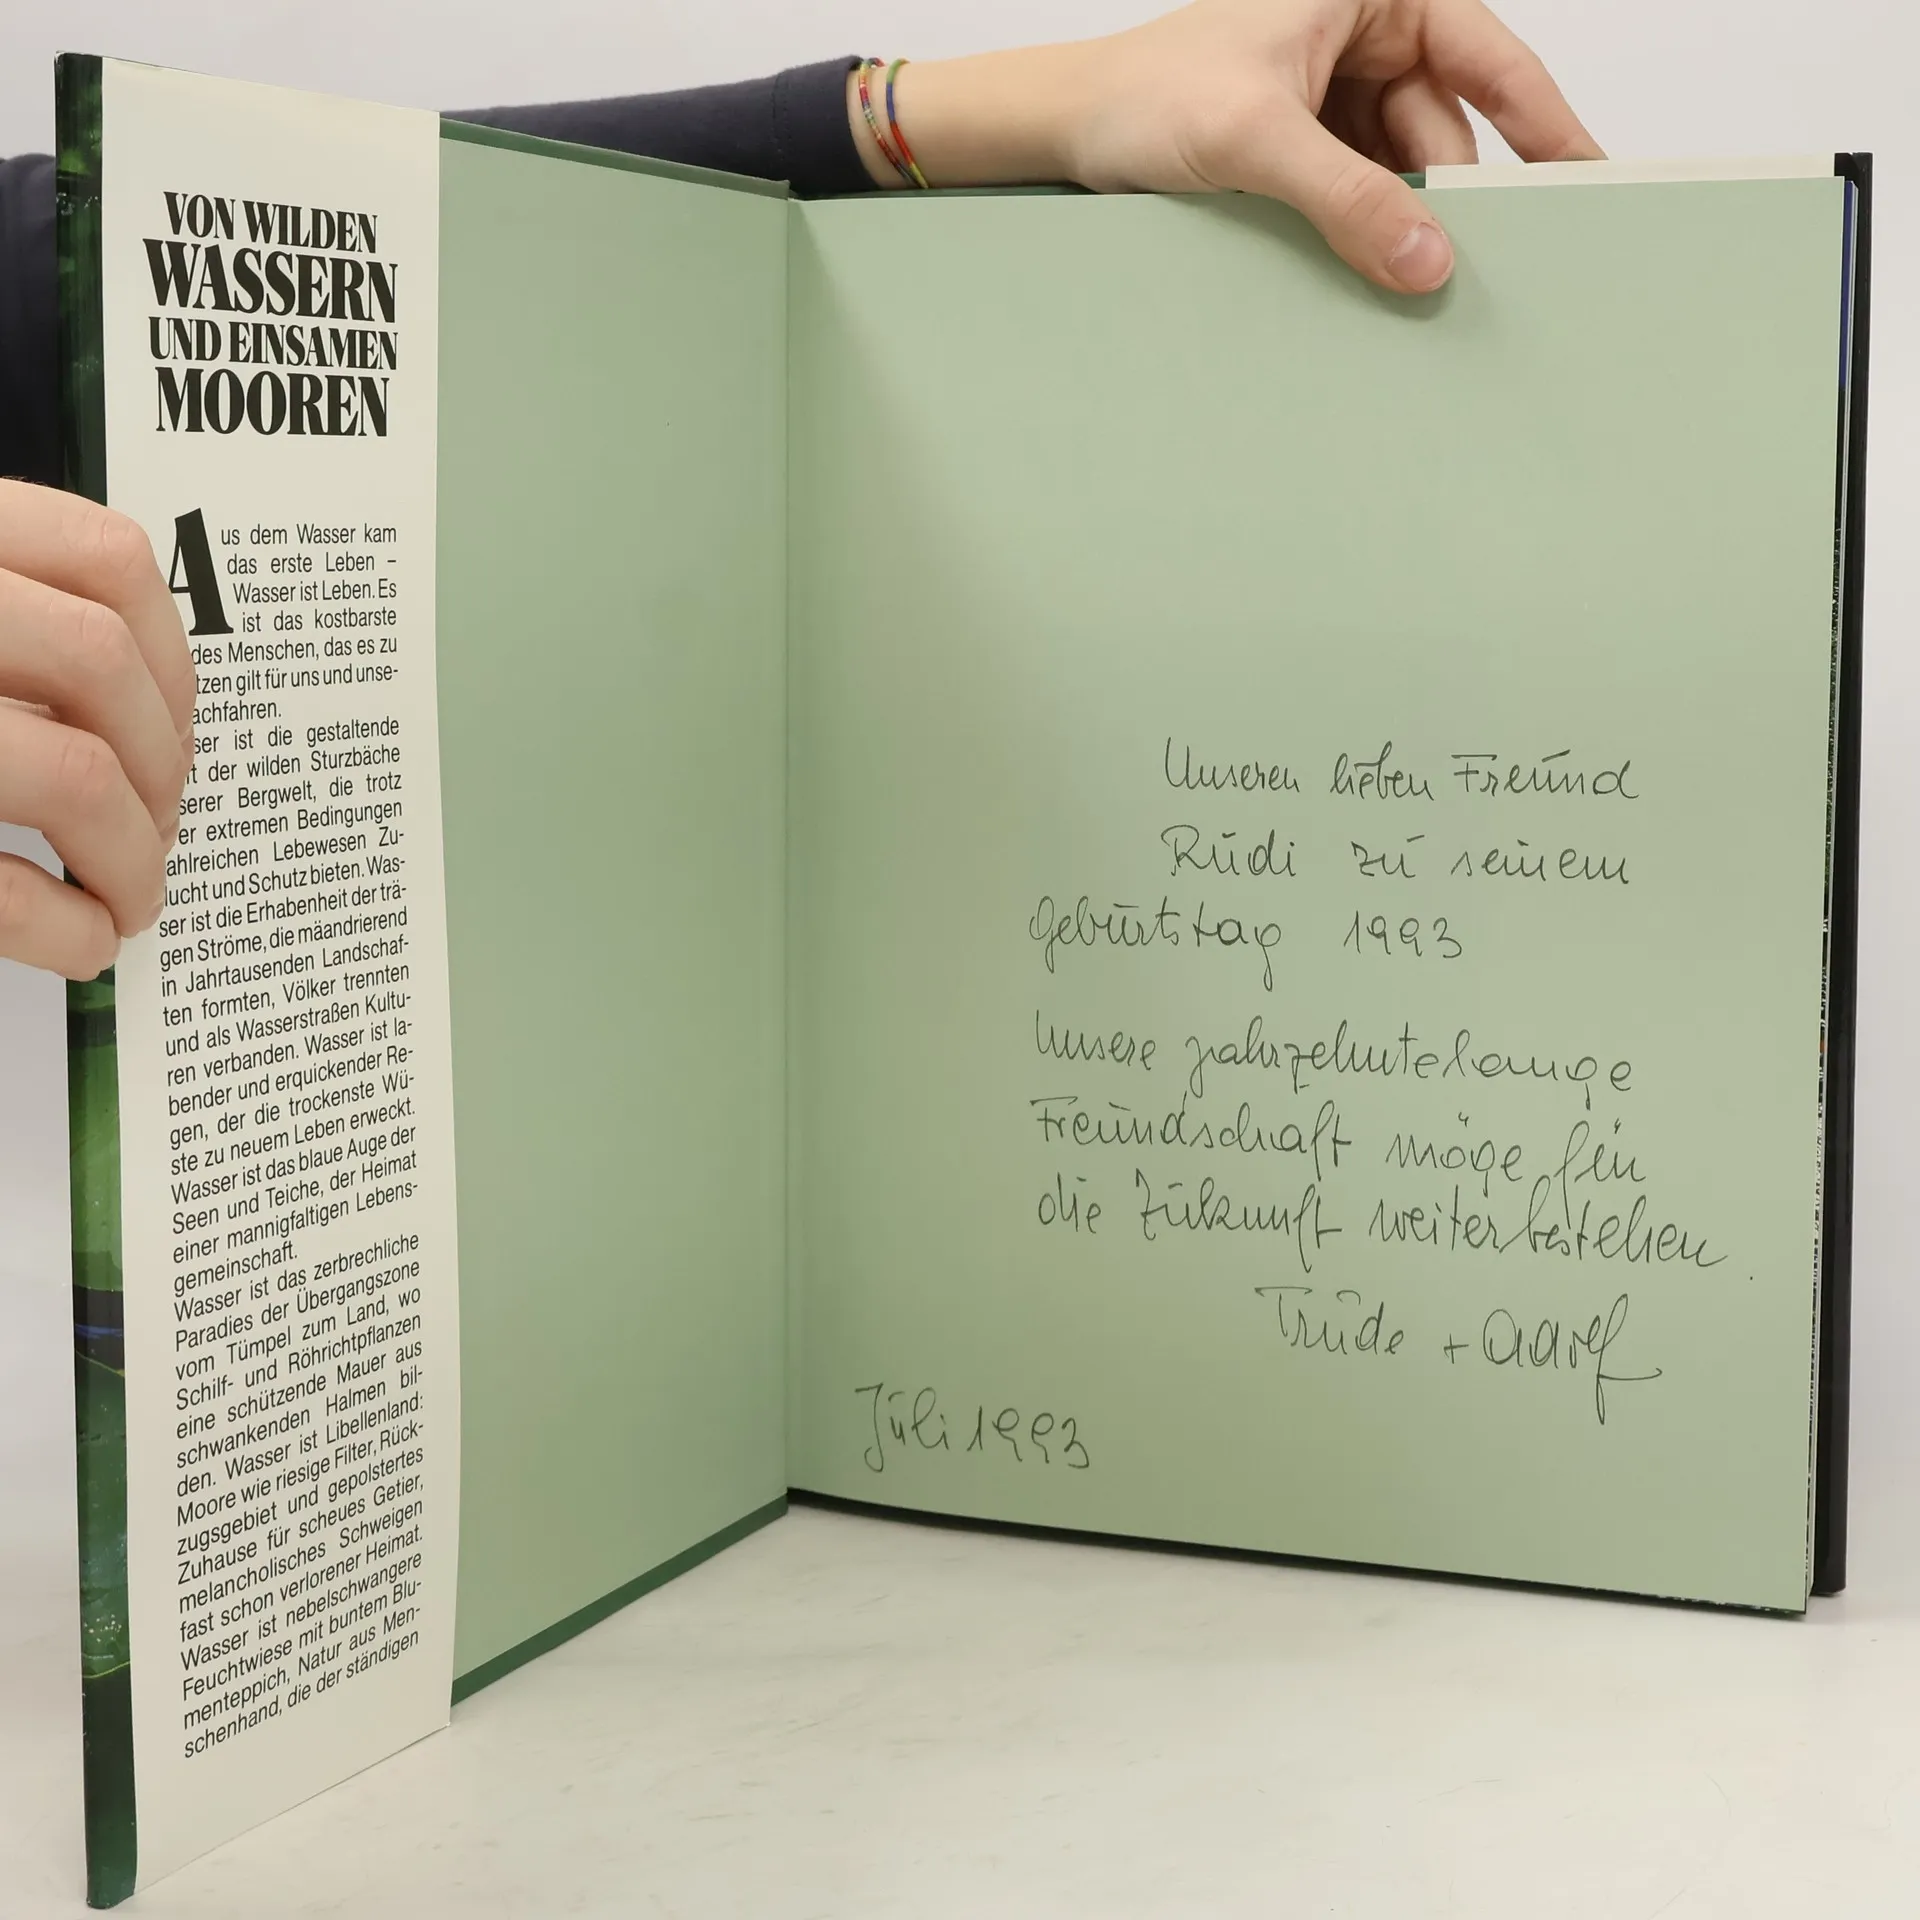 VON WILDEN
WASSERN
UND EINSAMEN
MOOREN
Aus dem Wasser kam
das erste Leben –
Wasser ist Leben. Es
ist das kostbarste
des Menschen, das es zu
tzen gilt für uns und unse-
achfahren.
ser ist die gestaltende
t der wilden Sturzbäche
serer Bergwelt, die trotz
er extremen Bedingungen
ahlreichen Lebewesen Zu-
lucht und Schutz bieten. Was-
ser ist die Erhabenheit der trä-
gen Ströme, die mäandrierend
in Jahrtausenden Landschaf-
ten formten, Völker trennten
und als Wasserstraßen Kultu-
ren verbanden. Wasser ist la-
bender und erquickender Re-
gen, der die trockenste Wü-
ste zu neuem Leben erweckt.
Wasser ist das blaue Auge der
Seen und Teiche, der Heimat
einer mannigfaltigen Lebens-
gemeinschaft.
Wasser ist das zerbrechliche
Paradies der Übergangszone
vom Tümpel zum Land, wo
Schilf- und Röhrichtpflanzen
eine schützende Mauer aus
schwankenden Halmen bil-
den. Wasser ist Libellenland:
Moore wie riesige Filter, Rück-
zugsgebiet und gepolstertes
Zuhause für scheues Getier,
melancholisches Schweigen
fast schon verlorener Heimat.
Wasser ist nebelschwangere
Feuchtwiese mit buntem Blu-
menteppich, Natur aus Men-
schenhand, die der ständigen
Unseren lieben Freund
Rudi zu seinem
Geburtstag 1993
Unsere jahrzehntelange
Freundschaft möge für
die Zukunft weiterbestehen.
Trude + Adolf
Juli 1993